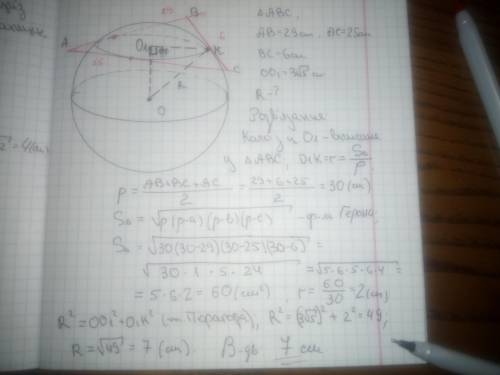 △ABC,
AB=29см, AC=25см
BC=6см
OO₁=3√5 см
R-?
Розв'язання
Коло з ц. O₁ - вписане
у △ABC, O₁K=r=S△/p
p = (AB+BC+AC)/2 = (29+6+25)/2 = 30 (см)
S△ = √(p(p-a)(p-b)(p-c)) - ф-ла Герона,
S△ = √(30(30-29)(30-25)(30-6)) =
√(30·1·5·24) = √(5·6·5·6·4) =
= 5·6·2 = 60 (см²), r = 60/30 = 2 (см),
R² = OO₁² + O₁K² (т. Піфагора), R² = (3√5)² + 2² = 49,
R = √49 = 7 (см). В-дь 7 см
A
B
C
O₁
K
R
O
29
6
25
= 4 (см)